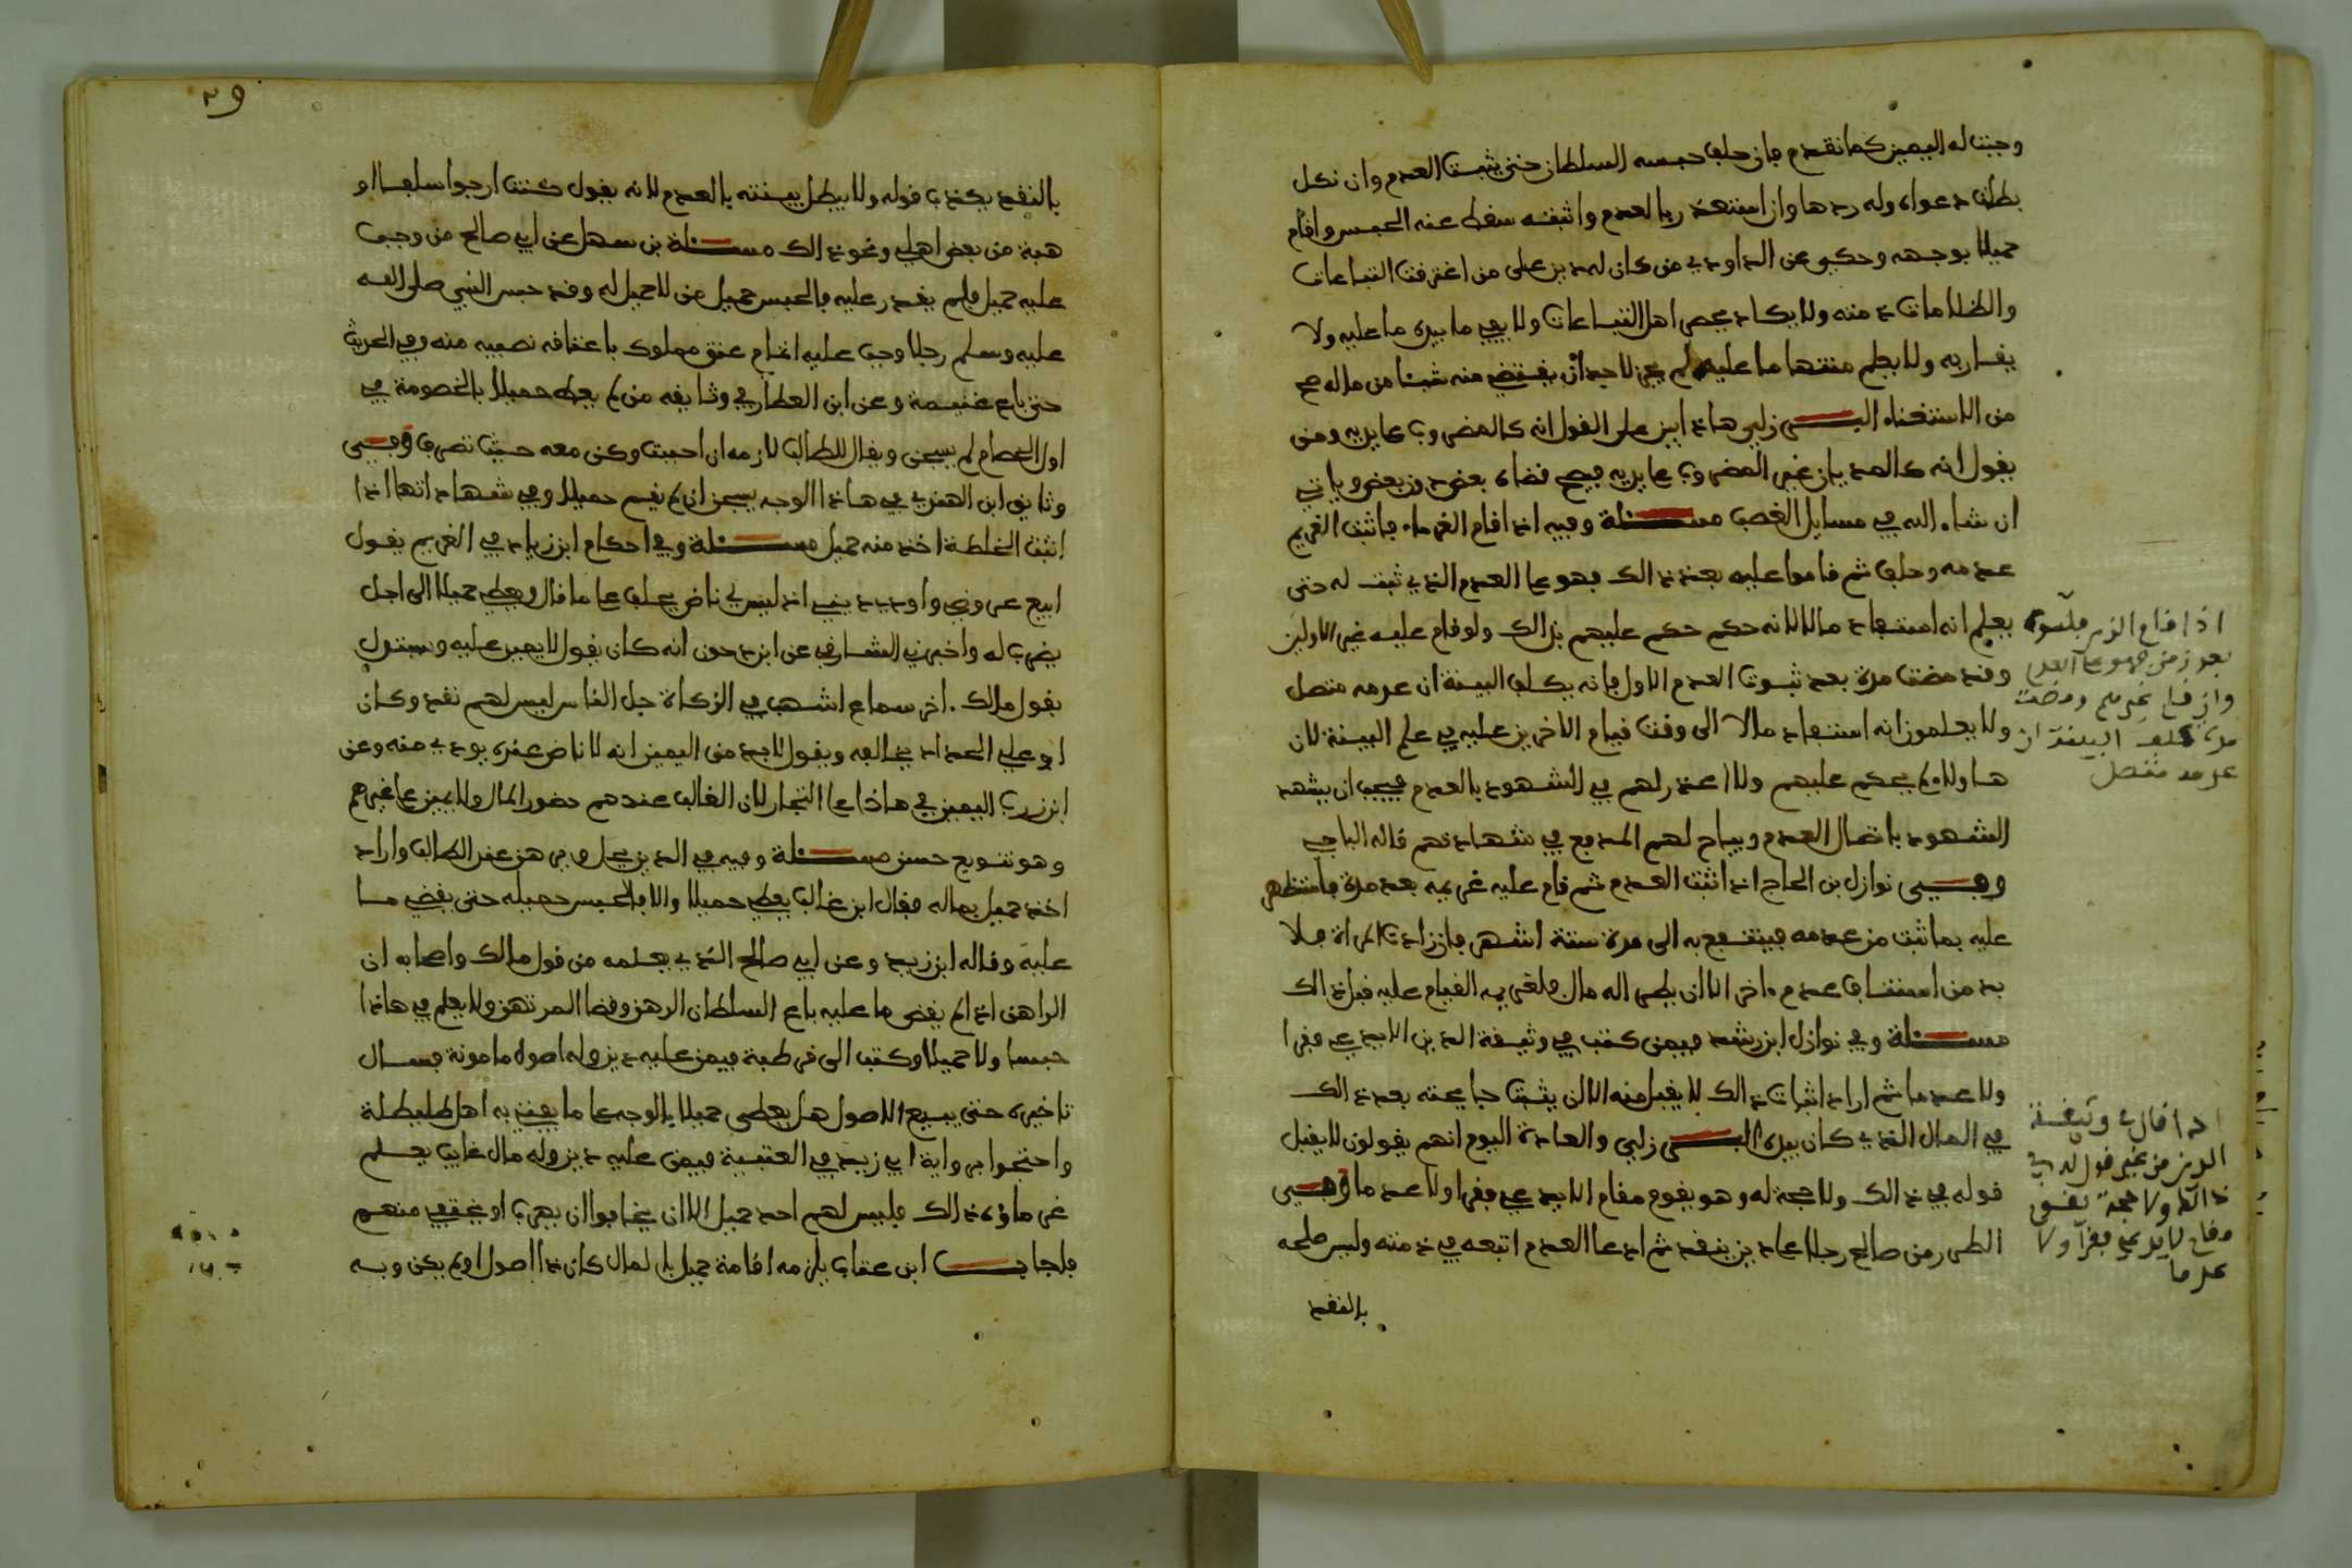 وجبت له اليمين كما تقدم فان حلف حبسه السلطان حتى يثبت العدم وان نكل
بطلت دعواه وله ردها وان استعذر بالعدم واثبته سقط عنه الحبس واقام
حميلا بوجهه وحكى عن الداودي من كان له دين على من اغترفت التباعات
والظلامات ذمته ولا يكاد يحصى اهل التباعات ولا يفي ما بيده ما عليه ولا
يقاربه ولا يعلم منتهى ما عليه لم يجز لاحد ان يقتضي منه شيئا من ماله صح
من الاستغناء البرزلي هاذا يبنى على القول انه كالمضروب على يديه ومن
يقول انه كالمديان غير المضروب على يديه فيصح قضاه بعض دون بعض وياتي
ان شاء الله في مسايل الغصب مسئلة وفيه اذا اقام الغرماء فاثبت الغريم
عدمه وحلف ثم قاموا عليه بعد ذالك فهو على العدم الذي ثبت له حتى
يعلم انه استفاد مالا لانه حكم حكم عليهم بذالك ولو قام عليه غير الاولين
وقد مضت مدة بعد ثبوت العدم الاول فانه يكلف البينة ان عدمه متصل
ولا يعلمون انه استفاد مالا الى وقت قيام الاخرين عليه في علم البينة لان
هاولاء لم يحكم عليهم ولا اعذر لهم في الشهود بالعدم فيجب ان يشهد
الشهود باتصال العدم ويباح لهم المدفع في شهادتهم قاله الباجي
وفي نوازل بن الحاج اذا اثبت العدم ثم قام عليه غريمه بعد مدة فاستظهر
عليه بما ثبت من عدمه فينتفع به الى مدة ستة اشهر فان زادت المراة فلا
بد من استيناف عدم ءاخر الا ان يطرى اله مال فلغريمه القيام عليه قبل ذالك
مسئلة وفي نوازل ابن رشد فيمن كتب في وثيقة الدين الا يدعي فقرا
ولا عدما ثم اراد اثبات ذالك لا يقبل منه الا ان يثبت جايحته بعد ذالك
في المال الذي كان بيده البرزلي والعادة اليوم انهم يقولون لا يقبل
قوله في ذالك ولا حجة له وهو يقوم مقام الا يدعي فقرا ولا عدما وفي
الطرر من صالح رجلا على دين بنقد ثم ادعا العدم اتبعه في ذمته وليس صلحه
بالنقد
اذا اقام الغريم
بعد زمن فهو على العدم
وان قام غيرهم ومضت
مدة كلف البينة ان
عدمه متصل
اذا قال في وثيقة
الدين من غير قول له في
ذالك ولا حجة
مقام لا يدعي فقرا ولا
عدما
٣٩
بالنقد يكذب قوله ولا يبطل بينته بالعدم لانه يقول كنت ارجوا سلفا او
هبة من بعض اهلي ونحو ذالك مسئلة بن سهل عن ابي صالح من وجب
عليه حميل فلم يقدر عليه فالحبس حميل من لا حميل له وقد حبس النبي صلى الله
عليه وسلم رجلا وجب عليه اتمام عتق مملوك باعتاقه نصيبه منه وفي الحديث
حتى باع غنيمة وعن ابن العطار في وثايقه من لم يعط حميلا بالخصومة في
اول الخصام لم يسجن ويقال للطالب لازمه ان احببت وكن معه حيث تصرف وفي
وثايق ابن الهندي في هاذا الوجه يسجن ان لم يقم حميلا وفي شهاداتها اذا
اثبت الخلطة اخذ منه حميل مسئلة وفي احكام ابن زياد في الغريم يقول
ابيع عروضي واودي ديني اذ ليس لي ناض يحلف على ما قال ويعطي حميلا الى اجل
يضرب له واخبرني الشارفي عن ابن دحون انه كان يقول لا يمين عليه وسيتول
يقول مالك ءاخر سماع اشهب في الزكاة جل الناس ليس لهم نقد وكان
ابو علي الحداد يخالفه ويقول لابد من اليمين انه لا ناض عنده يودي منه وعن
ابن زرب اليمين في هاذا على التجار لان الغالب عندهم حضور المال ولا يمين على غيرهم
وهو تنويع حسن مسئلة وفيه في الدين يحل وفي رهن عند الطالب واراد
اخذ حميل بماله فقال ابن غالب يعطي حميلا والا فالحبس حميله حتى يقضي ما
عليه وقاله ابن زيد وعن ابي صالح الذي يعلمه من قول مالك واصحابه ان
الراهن اذا لم يقض ما عليه باع السلطان الرهن وقضا المرتهن ولا يعلم في هاذا
حبسا ولا حميلا وكتب الى قرطبة فيمن عليه دين وله اصول مامونة فسال
تاخيره حتى يبيع الاصول هل يعطي حميلا بالوجه على ما يفتي به اهل طليطلة
واحتجوا برواية ابي زيد في العتبية فيمن عليه دين وله مال غايب يعلم
غرماؤه ذالك فليس لهم اخذ حميل الا ان يخافوا ان يهرب او يختفي منهم
فاجاب ابن عتاب يلزمه اقامة حميل بالمال كان ذا اصول او لم يكن وبه